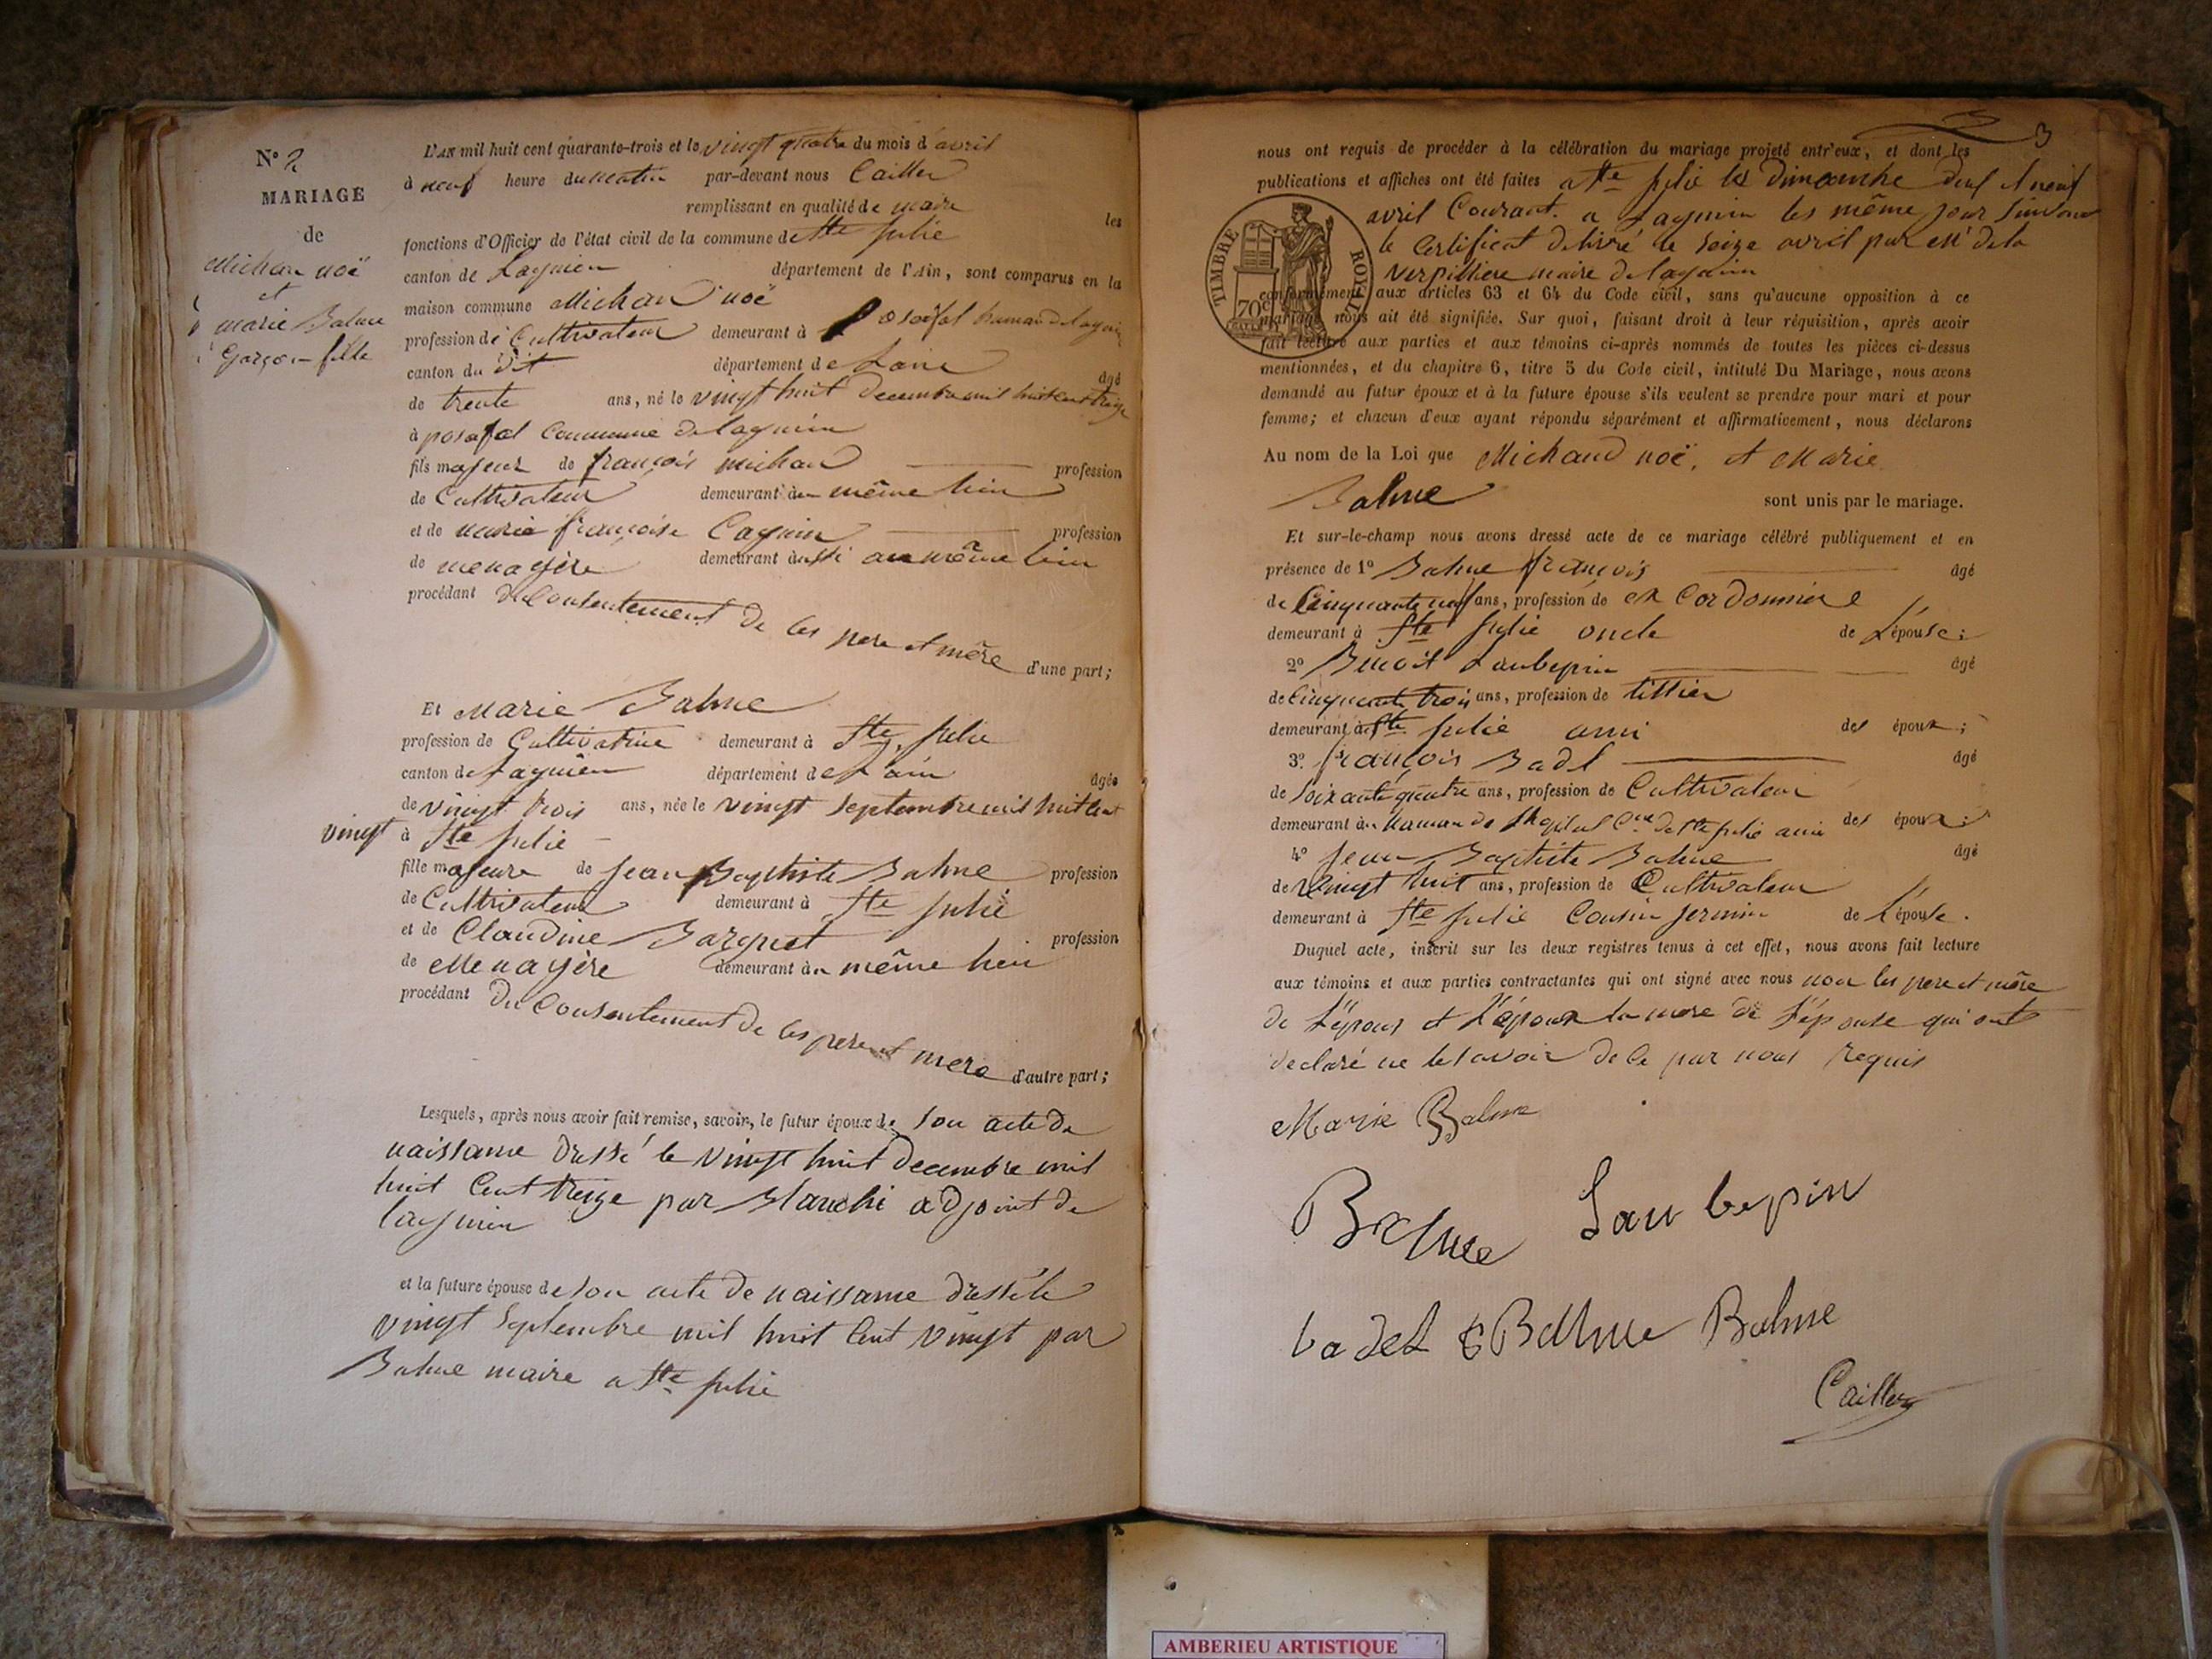 N° 2
MARIAGE
de
Michau noë
et
marie Balme
Garçon fille
L'AN mil huit cent quarante-trois et le vingt quatre du mois d'avril
à neuf heure du matin par-devant nous Cailler
remplissant en qualité de maire les
fonctions d'Officier de l'état civil de la commune de Ste julie
canton de Lagnieu département de l'Ain, sont comparus en la
maison commune Michau noë
profession de Cultivateur demeurant à posafol hamau de lagnieu
canton du dit département de Lain âgé
de trente ans, né le vingt huit decembre mil huit cent treize
à posafol Commune de lagnieu
fils majeur de françois michau profession
de Cultivateur demeurant au même lieu
et de marie françoise profession
de menagère demeurant aussi au même lieu
procédant du Consentement de ses pere et mère d'une part;
Et Marie Balme
profession de Cultivatrice demeurant à Ste julie
canton de Lagnieu département de Lain âgée
de vingt trois ans, née le vingt septembre mil huit cent
vingt à Ste julie
fille majeure de jean Baptiste Balme profession
de Cultivateur demeurant à Ste julie
et de Claudine Barquet profession
de Menagère demeurant au même lieu
procédant du Consentement de ses pere et mere d'autre part;
Lesquels, après nous avoir fait remise, savoir, le futur époux de son acte de
naissance dressé le vingt huit decembre mil
huit Cent treize par Blanchi adjoint de
lagnieu
et la future épouse de son acte de naissance dressé le
vingt septembre mil huit Cent vingt par
Balme maire a Ste julie
3
nous ont requis de procéder à la célébration du mariage projeté entr'eux, et dont les
publications et affiches ont été faites a Ste julie les dimanche deux et neuf
avril Courant. a Lagnieu les même jour suivant
le Certificat delivré le seize avril par Mr dela
verpilliere maire de lagnieu
TIMBRE ROYAL
70c
conformément aux articles 63 et 64 du Code civil, sans qu'aucune opposition à ce
mariage nous ait été signifiée. Sur quoi, faisant droit à leur réquisition, après avoir
fait lecture aux parties et aux témoins ci-après nommés de toutes les pièces ci-dessus
mentionnées, et du chapitre 6, titre 5 du Code civil, intitulé Du Mariage, nous avons
demandé au futur époux et à la future épouse s'ils veulent se prendre pour mari et pour
femme; et chacun d'eux ayant répondu séparément et affirmativement, nous déclarons
Au nom de la Loi que Michaud noë, et Marie
Balme sont unis par le mariage.
Et sur-le-champ nous avons dressé acte de ce mariage célébré publiquement et en
présence de 1° Balme françois âgé
de Cinquante neuf ans, profession de ex Cordonnier
demeurant à Ste julie oncle de L'épouse;
2° Benoit Laubepin âgé
de Cinquante trois ans, profession de tissier
demeurant à Ste julie ami des époux;
3°. françois Badel âgé
de soixante quatre ans, profession de Cultivateur
demeurant au hamau de lhopital Cne de Ste julie ami des époux;
4° jean Baptiste Balme âgé
de vingt huit ans, profession de Cultivateur
demeurant à Ste julie Cousin jermin de L'épouse.
Duquel acte, inscrit sur les deux registres tenus à cet effet, nous avons fait lecture
aux témoins et aux parties contractantes qui ont signé avec nous non les pere et mère
de L'époux et L'époux la mere de L'épouse qui ont
declaré ne le savoir de ce par nous requis
Marie Balme
Balme Laubepin
badel Balme Balme
Cailler
AMBERIEU ARTISTIQUE